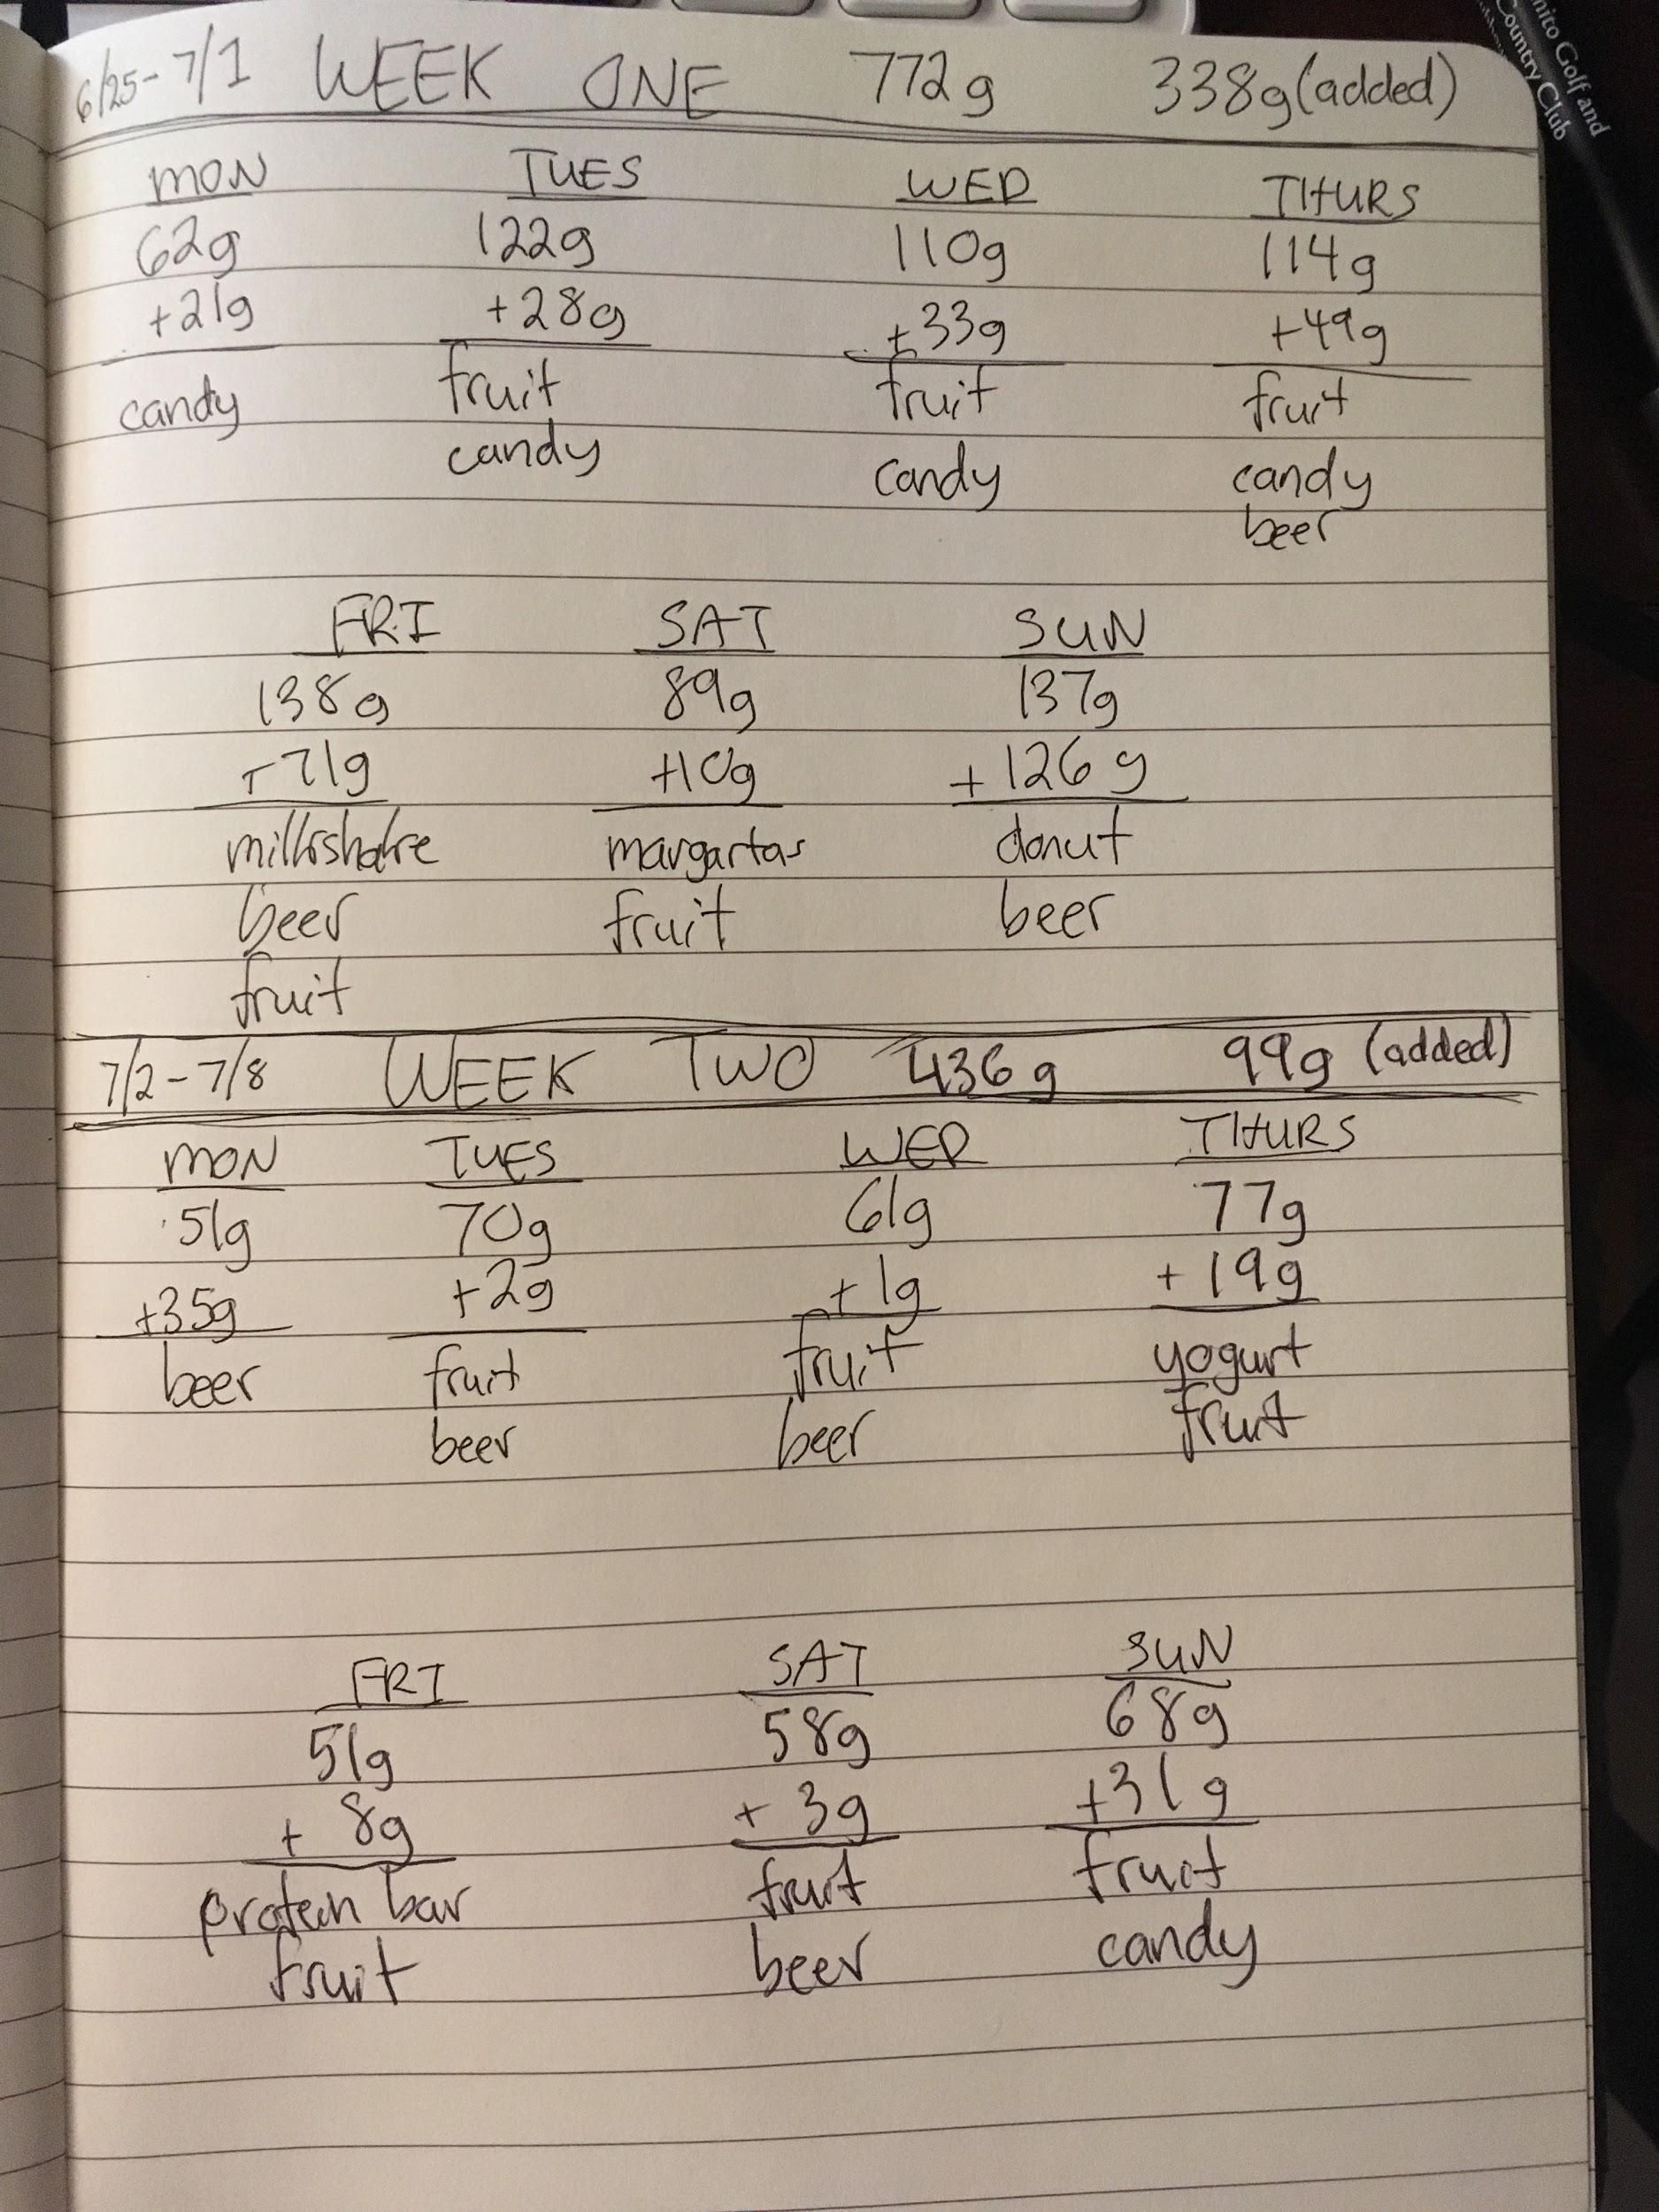 6/25-7/1 WEEK ONE 772g 338g (added)
MON TUES WED THURS
62g 122g 110g 114g
+21g +28g +33g +49g
candy fruit fruit fruit
candy candy candy
beer
FRI SAT SUN
138g 89g 137g
+71g +10g +126g
milkshake margartas donut
beer fruit beer
fruit
7/2-7/8 WEEK TWO 436g 99g (added)
MON TUES WED THURS
51g 70g 61g 77g
+35g +2g +1g +19g
beer fruit fruit yogurt
beer beer fruit
FRI SAT SUN
51g 58g 68g
+ 8g + 3g +31g
protein bar fruit fruit
fruit beer candy
nito Golf and
Country Club